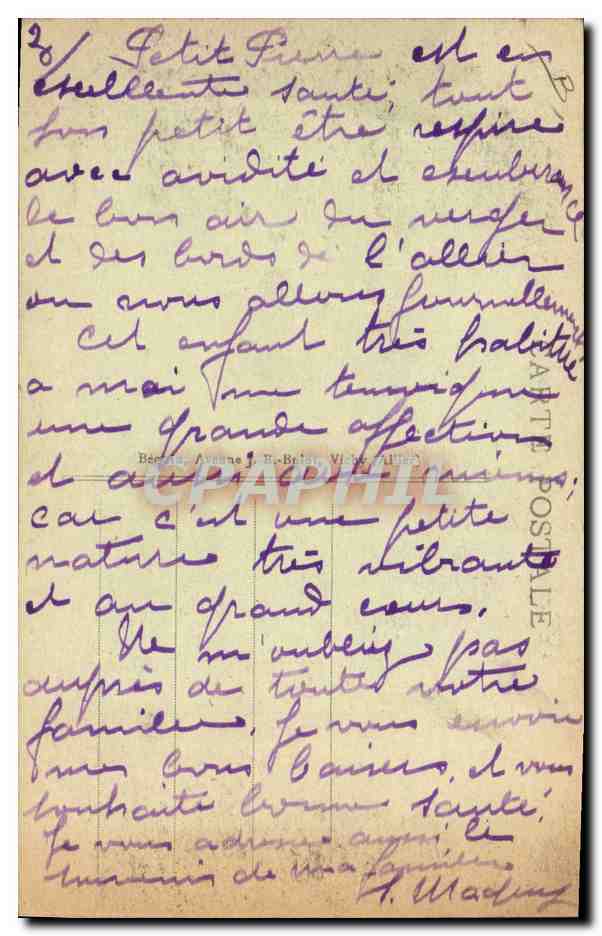 2/ Petit Pierre est en
exellente santé, tout
son petit être respire
avec avidité et exubérance
le bon air du verger
et des bords de l'allier
ou nous allons journellement
Cet enfant très habitué
a moi me temoigne
une grande affection
et aussi aux miens;
Bégula, Avenue J. B.-Bulot, Vichy (Allier)
car c'est une petite
nature très vibrante
et au grand cœur.
Ne m'oubliez pas
auprès de toute votre
famille. Je vous envoie
mes bons baisers, et vous
souhaite bonne santé.
Je vous adresse aussi le
souvenir de ma famille
CARTE POSTALE
CPAPHIL
B